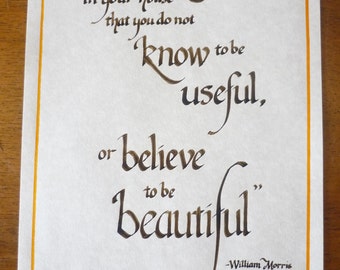 in your house
that you do not
know to be
useful,
or believe
to be
beautiful"
-William Morris